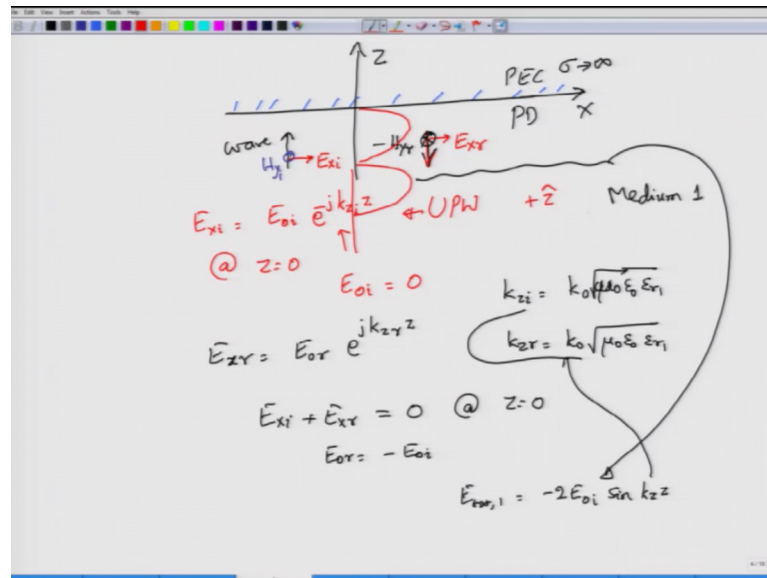 File Edit View Insert Actions Tools Help
Z
PEC σ→∞
PD X
wave
- Hyr Exr
Hyi Exi
Medium 1
Exi = Eoi e^-jkziz ← UPW +ẑ
@ z=0
Eoi = 0
kzi = k0√μ0ε0 εr1
kzr = k0√μ0ε0 εr1
Exr = Eor e^jkzrz
Exi + Exr = 0 @ z=0
Eor = - Eoi
= -2Eoi sin kzz